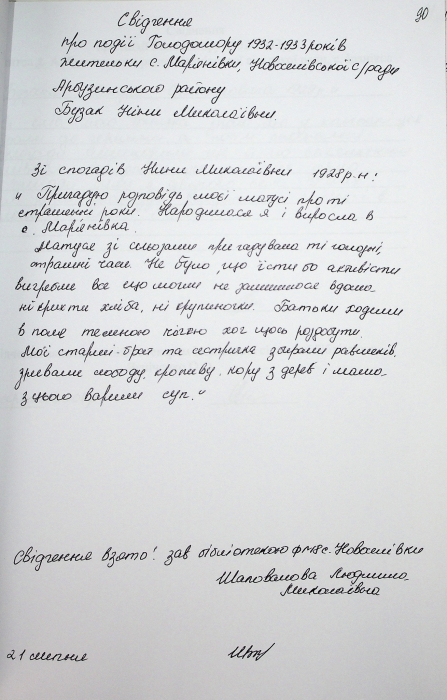 90
Свідчення
про події Голодомору 1932-1933 років
жительки с. Мар'їнівки, Новоселівської с/ради
Арбузинського району
Бузак Ніни Миколаївни
Зі спогадів Ніни Миколаївни 1928 р.н:
„ Пригадую розповідь моєї матусі про ті
страшенні роки. Народилася я і виросла в
с. Мар'їнівка.
Матуся зі сльозами пригадувала ті голодні,
страшні часи. Не було, що їсти бо активісти
вигребли все що могли не залишилося вдома
ні крихти хліба, ні крупиночки. Батьки ходили
в поле темною ніччю хоч щось роздобути.
Мої старші брат та сестричка збирали равликів,
зривали лободу, кропиву, кору з дерев і мама
з цього варили суп.“
Свідчення взято: зав бібліотекою с. Новоселівки
Шаповалова Людмила
Миколаївна
21 липня